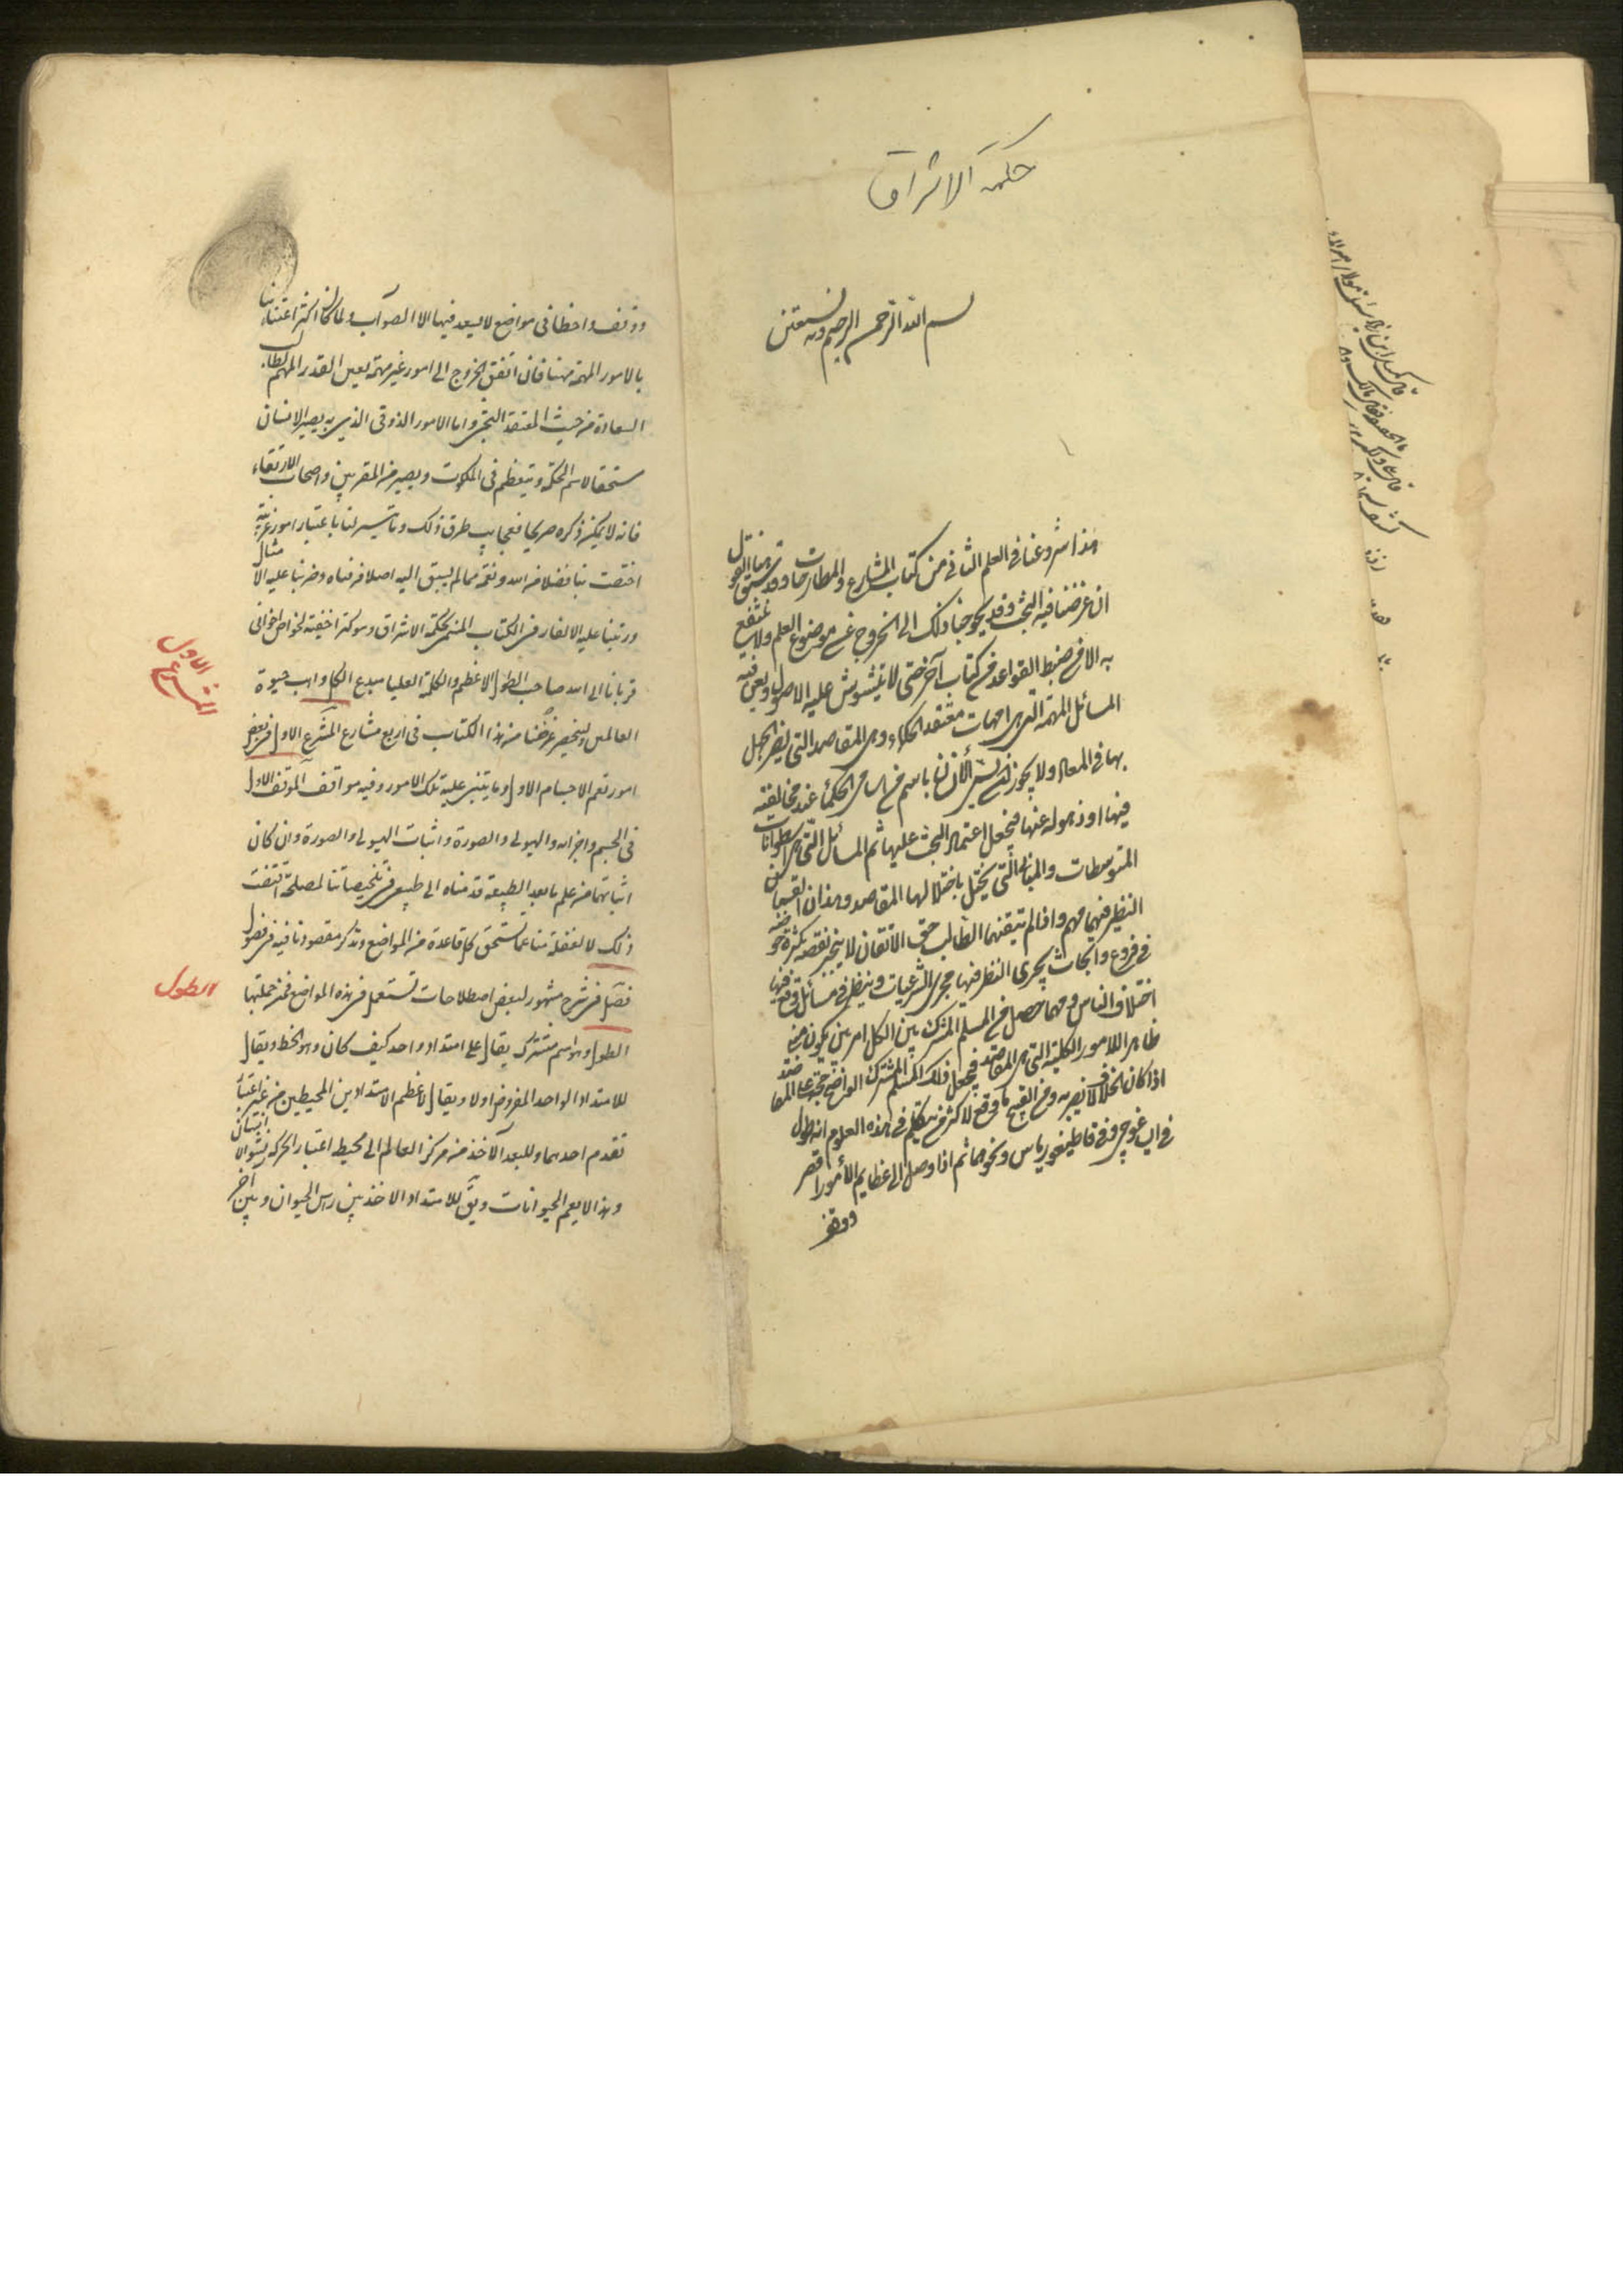 حكمة الاشراق
بسم الله الرحمن الرحيم وبه نستعين
هذا شروعنا فى العلم الثانى من كتاب المشارع والمطارحات وقد سبق منا القول
ان غرضنا فيه البحث وقد يحوجنا ذلك الى الخروج عن موضوع العلم ولا ينتفع
به الا من ضبط القواعد من كتاب آخر حتى لا يتشوش عليه الاصول ونعنى فيه
المسائل المهمة التى هى امهات معتقد الحكماء وهى المقاصد التى يضر الجهل
بها فى المعاد ولا يجوز ان الانسان باسم من اسامى الحكماء عند مخالفته
فيها او ذهوله عنها فنجعل اعتماد البحث عليها ثم المسائل التى هى
المتوسطات والمبادى التى يختل باختلالها المقاصد وهذان القسمان
النظر فيهما مهم واذا لم يتيقنهما الطالب حق الاتقان لا ينجبر نقصه بكثرة خوضه
فى فروع وابحاث يجرى النظر فيها مجرى الشرعيات وينظر فى مسائل وقع فيها
اختلاف الناس ومهما حصل من المسلم المشترك بين الكل امر بين يكون
ظاهرا للامور الكلية التى هى المقاصد فيجعل ذلك المسلم المشترك الواضح حجة على المقاصد
اذا كان الخلاف لا يضر به ومن القبيح ما وقع لاكثر من يتكلم فى هذه العلوم انه يطول
فى ايساغوجى وفى قاطيغورياس ونحوهما ثم اذا وصل الى عظايم الامور اقصر
ووقف
ووقف واخطا فى مواضع لا يسعد فيها الا الصواب ولما كان اكثر اعتنائنا
بالامور المهمة مهنا فان اتفق الخروج الى امور غير مهمة يعين القدر المهم لطالب
السعادة من حيث المعتقد البحثى واما الامور الذوقى الذى به يصير الانسان
مستحقا لاسم الحكمة ويتعظم فى الملكوت ويصير من المقربين واصحاب الارتقاء
فانه لا يمكن ذكره صريحا فعجايب طرق ذلك وما تيسر لنا باعتبار امور غريبة
اختصت بنا فضلا من الله ونعمة مما لم يسبق اليه اصلا رمزناه وضربنا عليه الامثال
ورتبنا عليه الالغاز فى الكتاب المسمى بحكمة الاشراق وهو كنز اخفيته لخواص اخوانى
قربانا الى الله صاحب الطول الاعظم والكلمة العليا مبدع الكل واهب حيوة
العالمين وينحصر غرضنا من هذا الكتاب فى اربع مشارع المشرع الاول فى بعض
امور تعم الاجسام الاول وما يتنبى عليه تلك الامور وفيه مواقف الموقف الاول
فى الجسم واجزائه والهيولى والصورة واثبات الهيولى والصورة وان كان
اثباتها من علم ما بعد الطبيعة قدمناه الى طبيعى فى تلخيصاتنا لمصلحة اقتضت
ذلك لا لغفلة منا عما تستحق كل قاعدة من المواضع ونذكر مقصودنا فيه فى فصول
فصل فى شرح مشهور لبعض اصطلاحات تستعمل فى هذه المواضع فمن جملتها
الطول وهو اسم مشترك يقال على امتداد واحد كيف كان وهو الخط ويقال
للامتداد الواحد المفروض اولا ويقال لاعظم الامتدادين المحيطين من غير اعتبار
تقدم احدهما وللبعد الآخذ من مركز العالم الى محيط اعتبار الحركة نشو الانسان
وهذا لا يعم الحيوانات ويق للامتداد الآخذ بين راس الحيوان وبين آخر
المشرع الاول
الطول